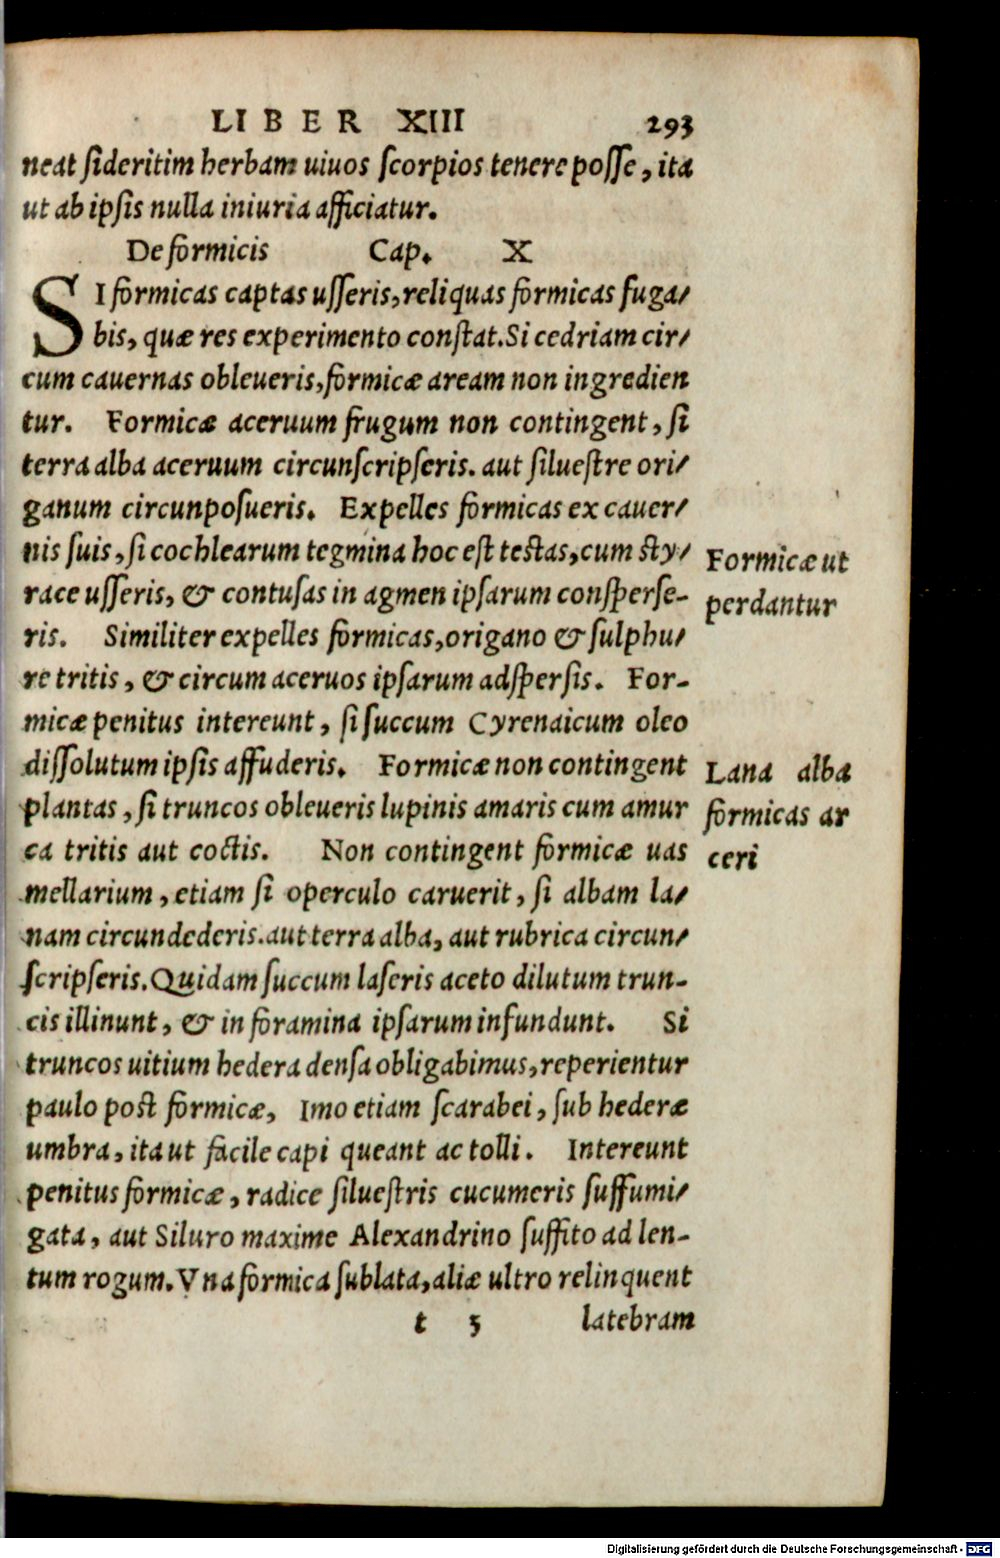 LIBER XIII 293
neat ſideritim herbam uiuos ſcorpios tenere poſſe, ita
ut ab ipſis nulla iniuria afficiatur.
De formicis Cap. X
SI formicas captas uſſeris, reliquas formicas fuga/
bis, quæ res experimento conſtat. Si cedriam cir/
cum cauernas obleueris, formicæ aream non ingredien
tur. Formicæ aceruum frugum non contingent, ſi
terra alba aceruum circunſcripſeris. aut ſilueſtre ori/
ganum circunpoſueris. Expelles formicas ex cauer/
nis ſuis, ſi cochlearum tegmina hoc eſt teſtas, cum ſty/
race uſſeris, & contuſas in agmen ipſarum conſperſe-
ris. Similiter expelles formicas, origano & ſulphu/
re tritis, & circum aceruos ipſarum adſperſis. For-
micæ penitus intereunt, ſi ſuccum Cyrenaicum oleo
diſſolutum ipſis affuderis. Formicæ non contingent
plantas, ſi truncos obleueris lupinis amaris cum amur
ca tritis aut coctis. Non contingent formicæ uas
mellarium, etiam ſi operculo caruerit, ſi albam la/
nam circundederis. aut terra alba, aut rubrica circun/
ſcripſeris. Quidam ſuccum laſeris aceto dilutum trun-
cis illinunt, & in foramina ipſarum infundunt. Si
truncos uitium hedera denſa obligabimus, reperientur
paulo poſt formicæ, Imo etiam ſcarabei, ſub hederæ
umbra, ita ut facile capi queant ac tolli. Intereunt
penitus formicæ, radice ſilueſtris cucumeris ſuffumi/
gata, aut Siluro maxime Alexandrino ſuffito ad len-
tum rogum. Vna formica ſublata, aliæ ultro relinquent
t 5 latebram
Formicæ ut
perdantur
Lana alba
formicas ar
ceri
Digitalisierung gefördert durch die Deutsche Forschungsgemeinschaft - DFG